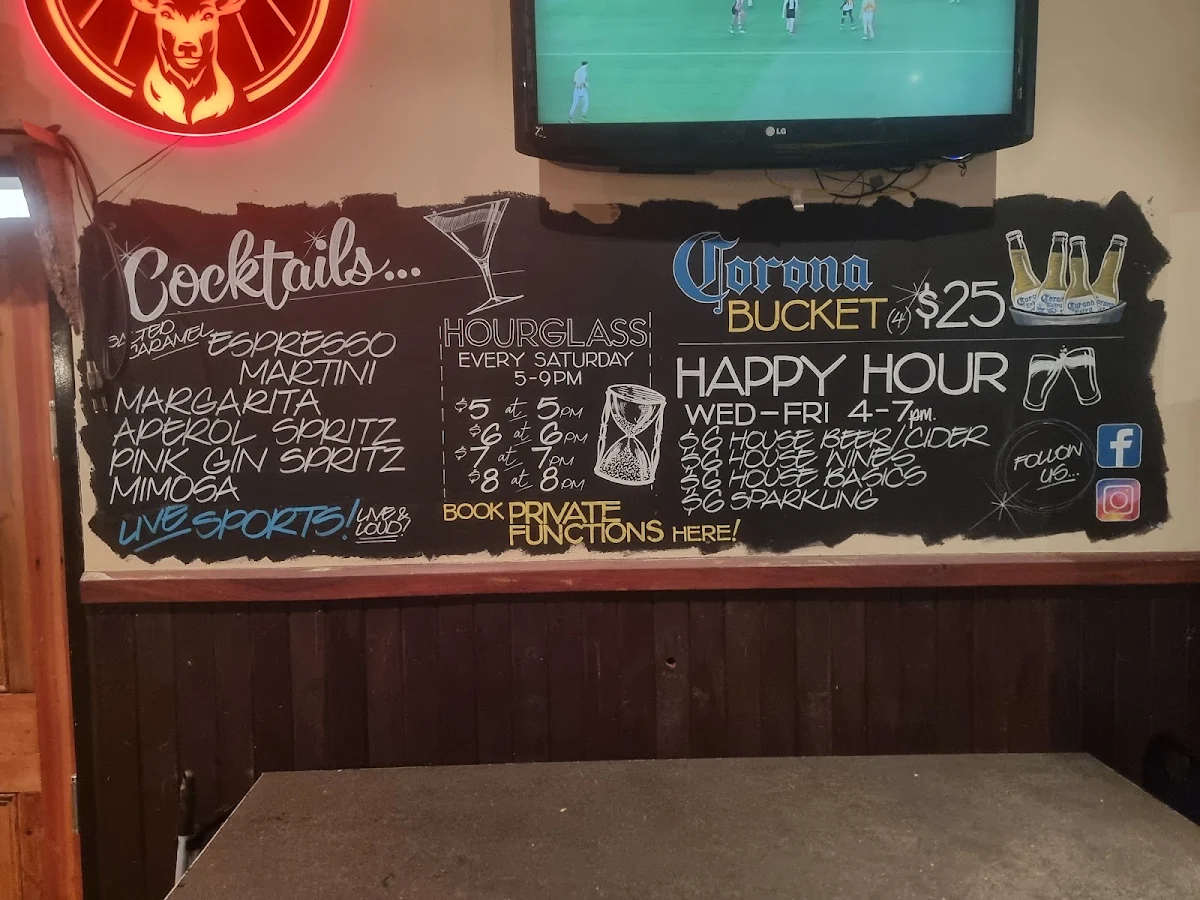 LG
Cocktails...
SALTED CARAMEL ESPRESSO
MARTINI
MARGARITA
APEROL SPRITZ
PINK GIN SPRITZ
MIMOSA
LIVE SPORTS! LIVE &
LOUD!
HOURGLASS
EVERY SATURDAY
5-9PM
$5 at 5PM
$6 at 6PM
$7 at 7PM
$8 at 8PM
BOOK PRIVATE
FUNCTIONS HERE!
Corona
BUCKET (4) $25
Corona
Corona
HAPPY HOUR
WED-FRI 4-7pm.
$6 HOUSE BEER/CIDER
$6 HOUSE WINES
$6 HOUSE BASICS
$6 SPARKLING
FOLLOW
US...
f